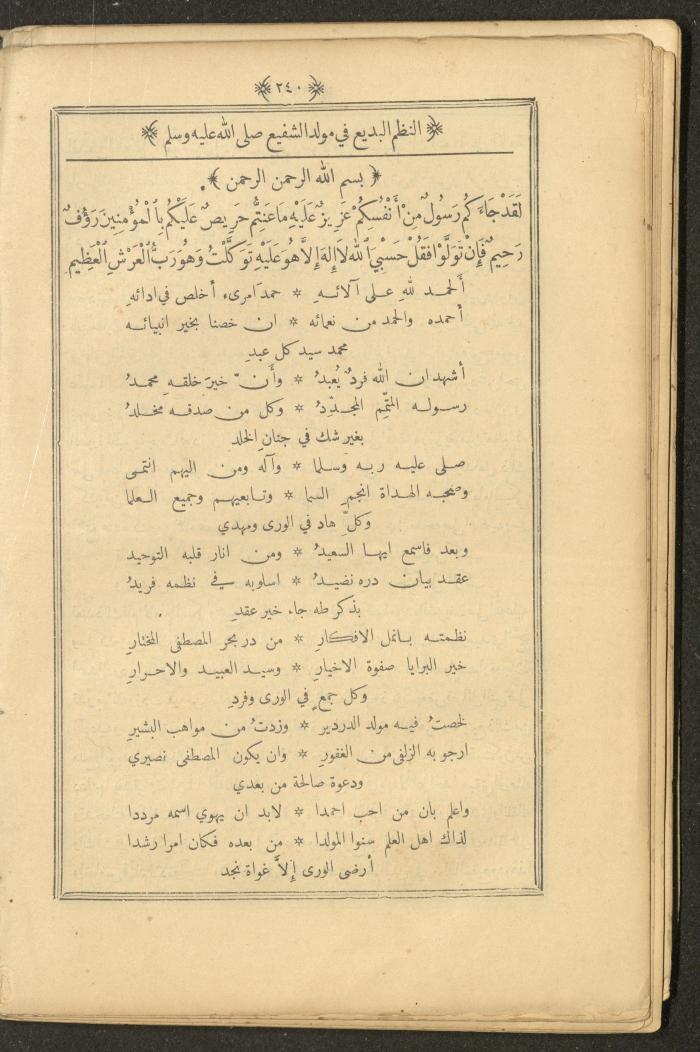 ٢٤٠
النظم البديع في مولد الشفيع صلى الله عليه وسلم
بسم الله الرحمن الرحمن
لَقَدْ جَاءَكُم رَسُولٌ مِنْ أَنْفُسِكُمْ عَزِيزٌ عَلَيْهِ مَا عَنِتُّم حَرِيصٌ عَلَيْكُم بِالْمُؤْمِنِينَ رَؤُفٌ
رَحِيمٌ فَإِنْ تَوَلَّوْا فَقُلْ حَسْبِيَ اللهُ لَا إِلهَ إِلَّا هُوَ عَلَيْهِ تَوَكَّلْتُ وَهُوَ رَبُّ الْعَرْشِ الْعَظِيمِ
أَلحمد للهِ على آلائه * حمدَ امرىء أخلص في ادائهِ
أحمده والحمد من نعمائه * ان خصنا بخير انبيائه
محمد سيد كل عبدِ
أشهد ان الله فردٌ يُعبدُ * وأَنّ خيرَ خلقهِ محمدُ
رسوله المتمِّم المجدِّدُ * وكل من صدقه مخلدُ
بغير شك في جنانِ الخلد
صلى عليه ربه وسلما * وآله ومن اليهم انتمى
وصحبه الهداة انجمِ السما * وتابعيهم وجميع العلما
وكلِّ هاد في الورى ومهدي
وبعد فاسمع ايها السعيدُ * ومن انار قلبه التوحيد
عقد بيان دره نضيدُ * اسلوبه في نظمه فريدُ
بذكر طه جاء خير عقدِ
نظمته بانمل الافكارِ * من در بحر المصطفى المختارِ
خير البرايا صفوة الاخيارِ * وسيد العبيد والاحرارِ
وكل جمعٍ في الورى وفردِ
لخصتُ فيه مولد الدردير * وزدتُ من مواهب البشيرِ
ارجو به الزلفى من الغفورِ * وان يكون المصطفى نصيري
ودعوة صالحة من بعدي
واعلم بان من احب احمدا * لابد ان يهوي اسمه مرددا
لذاك اهل العلم سنوا المولدا * من بعده فكان امرا رشدا
أرضى الورى إِلاَّ غواة نجد